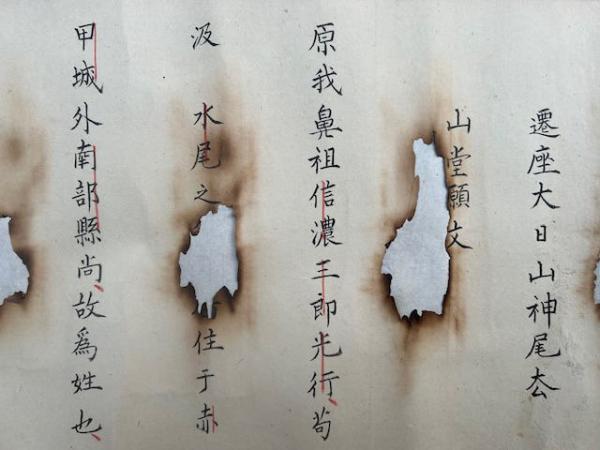 遷座大日山神尾厺
山堂願文
原我鼻祖信濃三郎光行、苟
汲 水尾之 住于赤
甲城外南部縣尚、故爲姓也、